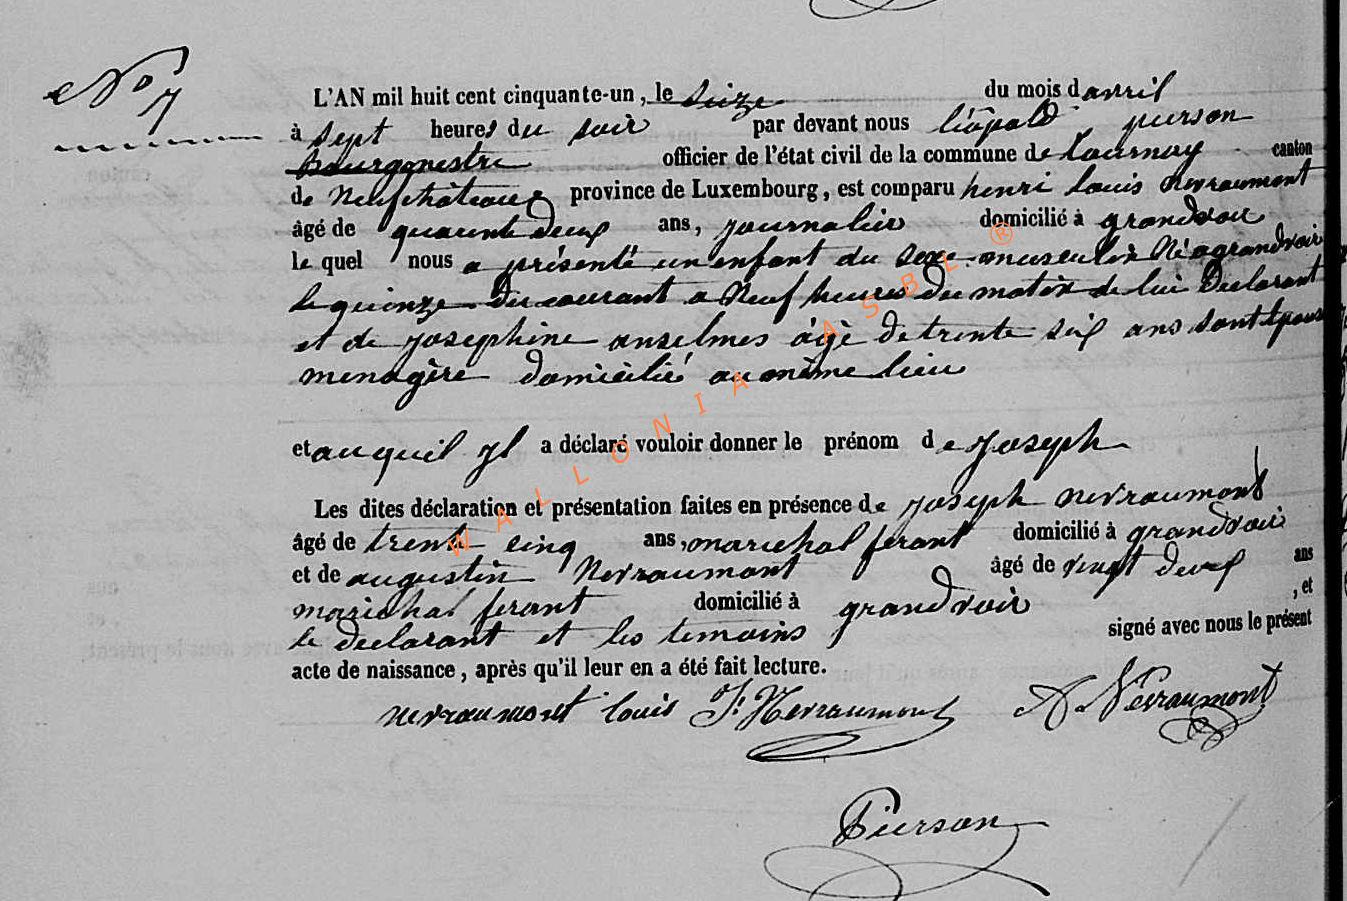 No 7
L'AN mil huit cent cinquante-un, le seize du mois d'avril
à sept heures du soir par devant nous léopold pierson
Bourgmestre officier de l'état civil de la commune de tournay canton
de Neufchâteau province de Luxembourg, est comparu henri louis Nevraumont
âgé de quarente deux ans, journalier domicilié à grandvoir
le quel nous a présenté un enfant du sexe masculin Né a grandvoir
le quinze du courant a Neuf heures du matin de lui Declarant
et de josephine anselmes âgè de trente six ans sont Epoux
menagère domicilié au même lieu
et au quil jl a déclaré vouloir donner le prénom de joseph
Les dites déclaration et présentation faites en présence de joseph nevraumont
âgé de trente cinq ans, marichal ferant domicilié à grandvoir
et de augustin Nevraumont âgé de vingt deux ans
marichal ferant domicilié à grandvoir , et
le declarant et les temoins signé avec nous le présent
acte de naissance, après qu'il leur en a été fait lecture.
nevraumont louis J. Nevraumont A Nevraumont
Pierson
WALLONIA ASBL ®